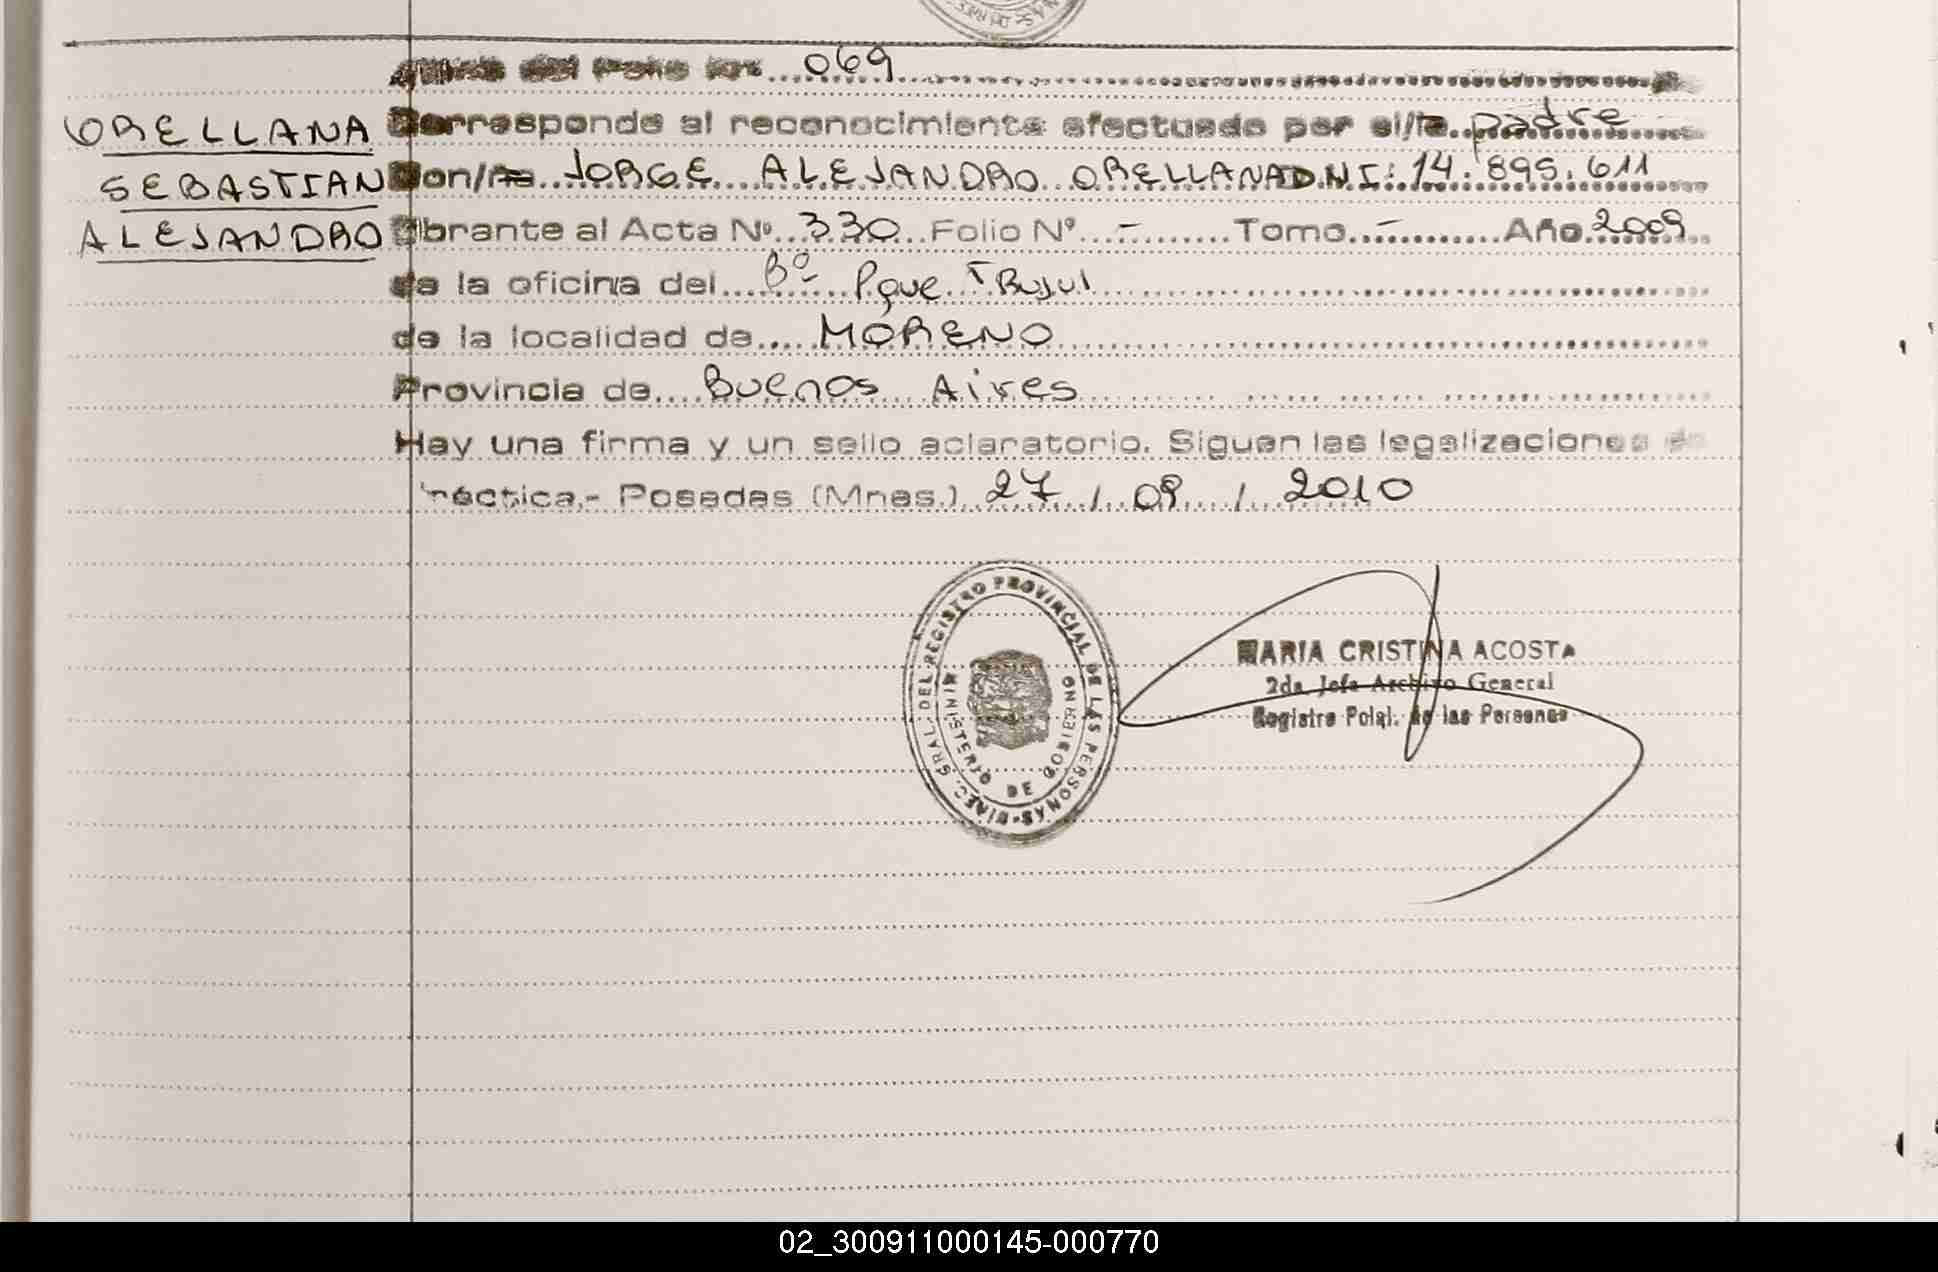 069
ORELLANA Corresponde al reconocimiento efectuado por el/la padre
SEBASTIAN Don/ña JORGE ALEJANDRO ORELLANA D.N.I: 14.895.611
ALEJANDRO Obrante al Acta Nº 330 Folio Nº - Tomo - Año 2009
de la oficina del Bº Pque Trujui
de la localidad de MORENO
Provincia de Buenos Aires
Hay una firma y un sello aclaratorio. Siguen las legalizaciones de
práctica.- Posadas (Mnes.) 27 / 09 / 2010
DIREC. GRAL. DEL REGISTRO PROVINCIAL DE LAS PERSONAS
MINISTERIO DE GOBIERNO
MARIA CRISTINA ACOSTA
2da Jefa Archivo General
Registro Pcial. de las Personas
02_300911000145-000770